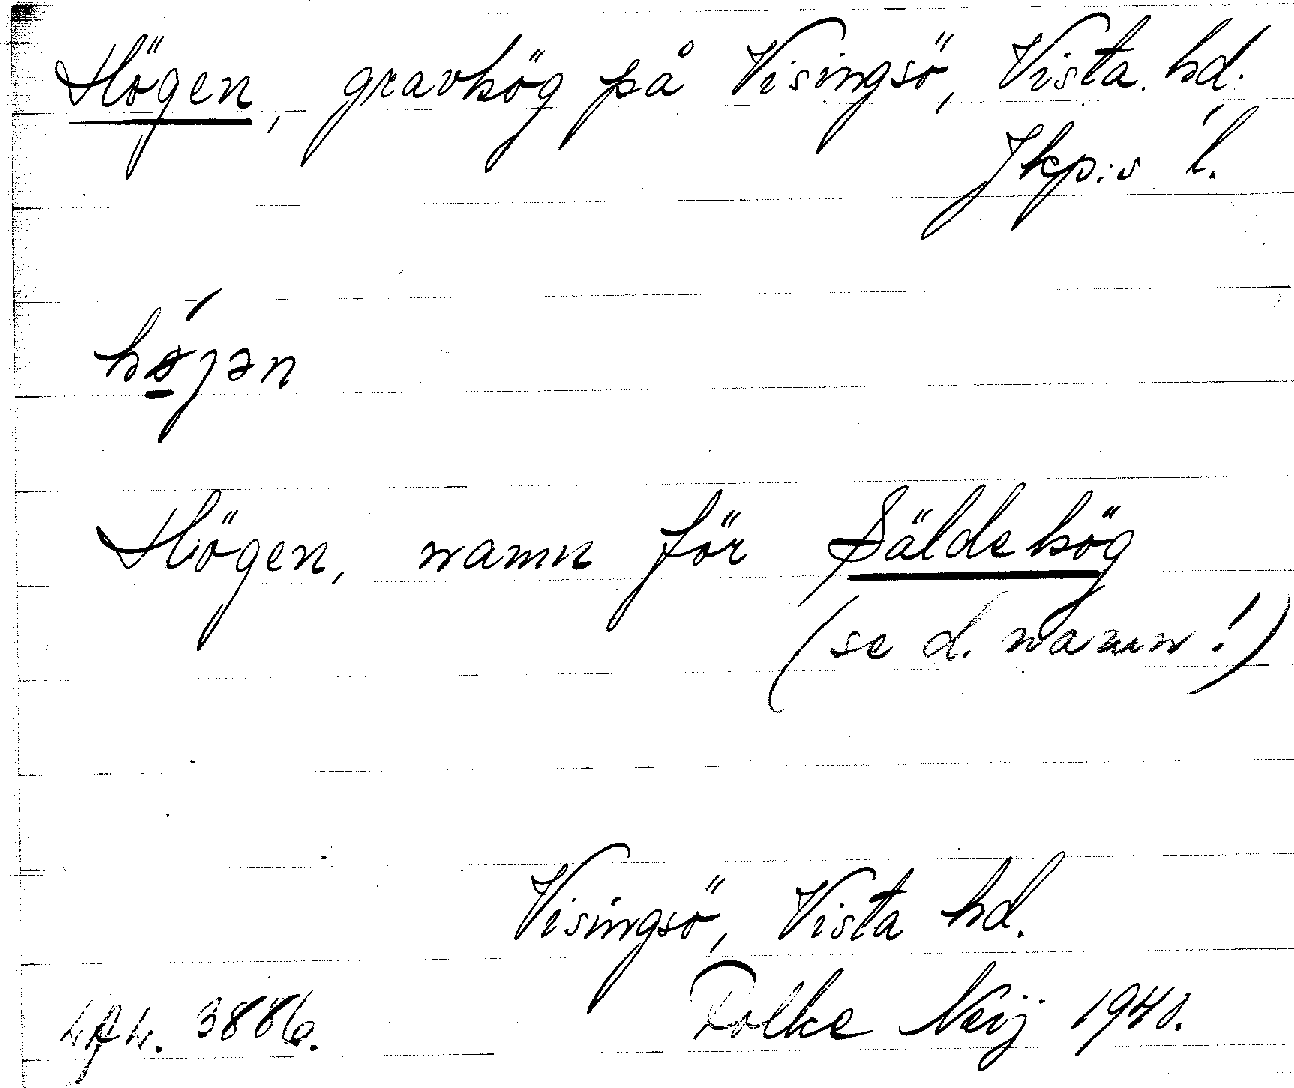 Högen, gravhög på Visingsö, Vista hd.
Jkp:s l.
hǿ̱jən
Högen, namn för Säldehög
(se d. namn!)
Visingsö, Vista hd.
3886. Folke Neij 1940.